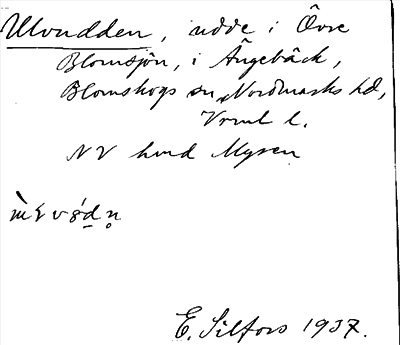 Ulvudden, udde i Övre
Blomsjön, i Ängebäck,
Blomskogs sn, Nordmarks hd,
Vrml l.
NV hmd Myren
E. Silfors 1937.